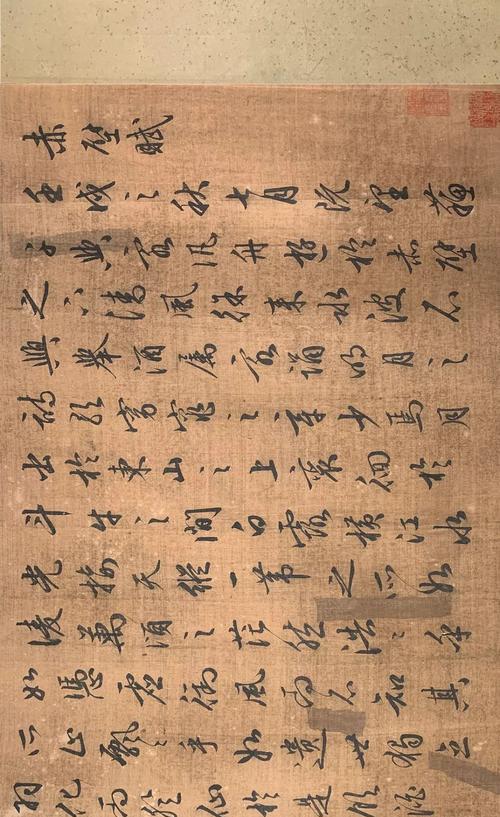 赤壁賦
壬戌之秋七月既望蘇
子與客汎舟遊於赤壁
之下清風徐來水波不
興舉酒屬客誦明月之
詩歌窈窕之章少焉月
出於東山之上裴佪於
斗牛之間白露橫江水
光接天縱一葦之所如
凌萬頃之茫然浩〻乎
如憑虛御風而不知其
所止飄〻乎如遺世獨立
羽化而登仙於是飲酒